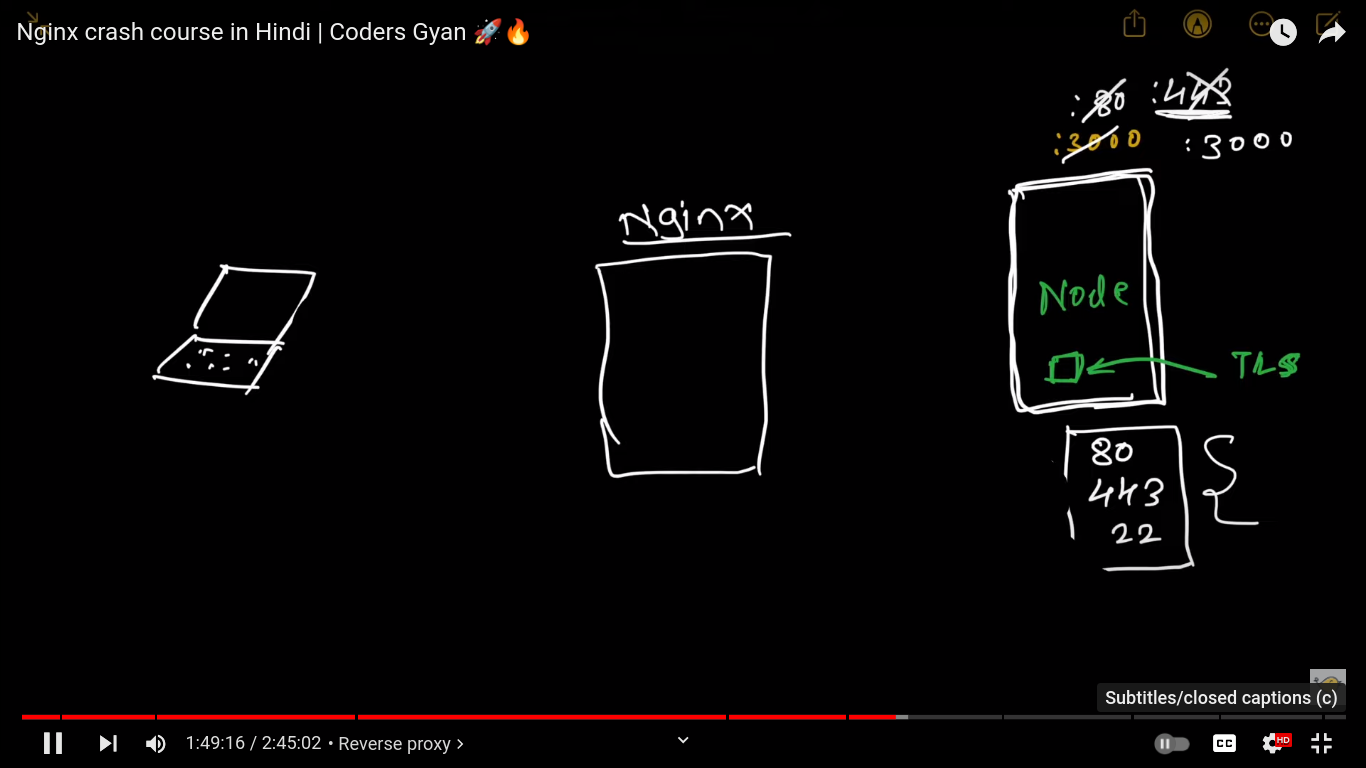 Nginx crash course in Hindi | Coders Gyan 🚀🔥
:80 :443
:3000 :3000
Nginx
Node
TLS
80
443
22
Subtitles/closed captions (c)
1:49:16 / 2:45:02 • Reverse proxy >
CC
HD